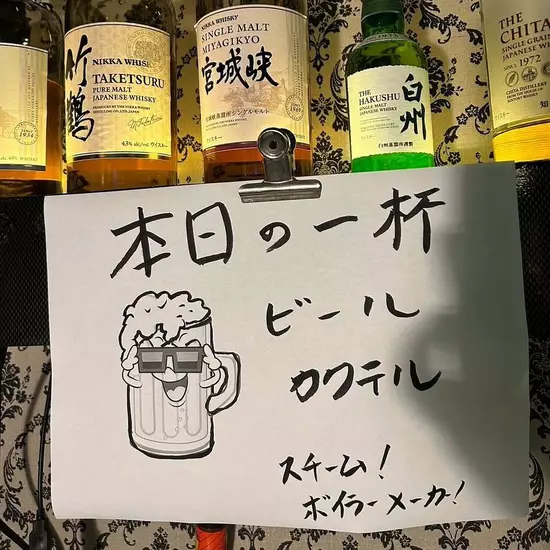 NIKKA WHISKY
竹鶴
TAKETSURU
PURE MALT
JAPANESE WHISKY
43% alc/vol ウイスキー
NIKKA WHISKY
SINGLE MALT
MIYAGIKYO
宮城峡
宮城峡蒸溜所シングルモルト
THE
HAKUSHU
SINGLE MALT
JAPANESE WHISKY
白州
白州蒸溜所謹製
THE
CHITA
SINGLE GRAIN
JAPANESE WHISKY
SINCE
1972
知
本日の一杯
ビール
カクテル
スチーム!
ボイラーメーカー!